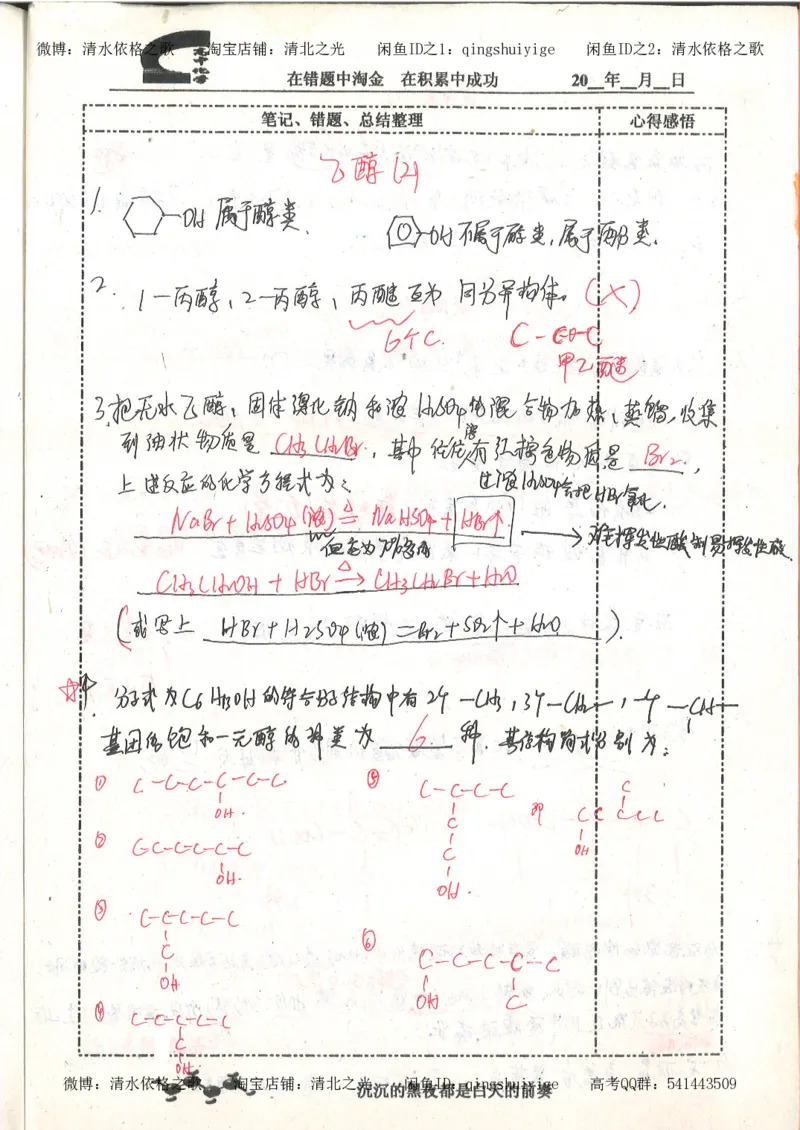 微博：清水依格之歌 淘宝店铺：清北之光 闲鱼ID之1：qingshuiyige 闲鱼ID之2：清水依格之歌
高中化学
在错题中淘金 在积累中成功 20__年__月__日
笔记、错题、总结整理 心得感悟
乙醇(2)
1. -OH 属于醇类. -OH 不属于醇类,属于酚类.
2. 1-丙醇,2-丙醇,丙醚互为同分异构体。(×)
6个C. C-C-O-C
甲乙醚
3.把无水乙醇,固体溴化钠和浓H2SO4的混合物加热,蒸馏,收集
到油状物质是 CH3CH2Br. ,其中往往有红棕色物质是 Br2. ,
溶
过浓H2SO4会把HBr氧化.
上述反应的化学方程式为:
NaBr+H2SO4(浓)=△=NaHSO4+HBr↑.
难挥发性酸制易挥发性酸
CH3CH2OH+HBr△→CH3CH2Br+H2O
(或写上 HBr+H2SO4(浓)=Br2+SO2↑+H2O ).
☆4. 分子式为C6H13OH的符合分子结构中有2个-CH3,3个-CH2-,一个-CH-
基团的饱和一元醇的种类为 6 种 其结构简式分别为:
① C-C-C-C-C-C
OH.
② C-C-C-C-C-C
OH.
③ C-C-C-C-C
C
OH
④ C-C-C-C-C
C
OH
⑤ C-C-C-C
C
C
OH.
即 C C C C C
C
OH
⑥ C-C-C-C-C
OH C
微博：清水依格之歌 淘宝店铺：清北之光 闲鱼ID：qingshuiyige 高考QQ群：541443509
沉沉的黑夜都是白天的前奏